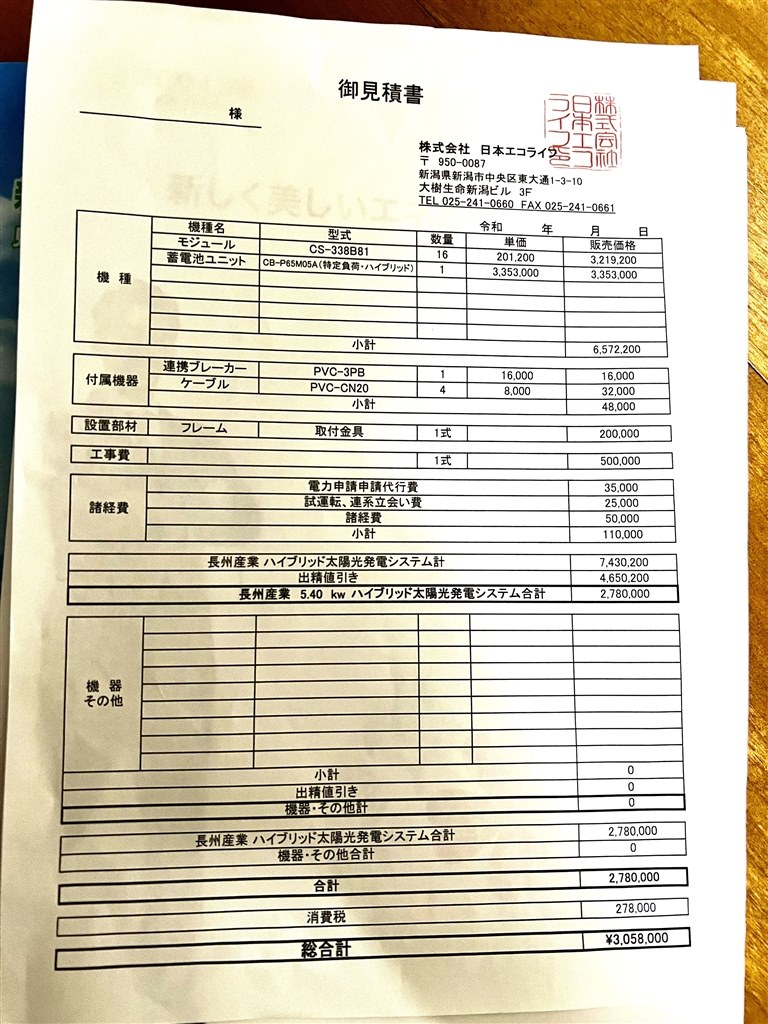 御見積書
様
株式会社 日本エコライフ
〒 950-0087
新潟県新潟市中央区東大通1-3-10
大樹生命新潟ビル 3F
TEL 025-241-0660 FAX 025-241-0661
株式会社
日本エコ
ライフ
令和 年 月 日
機種 機種名 型式 数量 単価 販売価格
モジュール CS-338B81 16 201,200 3,219,200
蓄電池ユニット CB-P65M05A(特定負荷・ハイブリッド) 1 3,353,000 3,353,000
小計 6,572,200
付属機器 連携ブレーカー PVC-3PB 1 16,000 16,000
ケーブル PVC-CN20 4 8,000 32,000
小計 48,000
設置部材 フレーム 取付金具 1式 200,000
工事費 1式 500,000
諸経費 電力申請申請代行費 35,000
試運転、連系立会い費 25,000
諸経費 50,000
小計 110,000
長州産業 ハイブリッド太陽光発電システム計 7,430,200
出精値引き 4,650,200
長州産業 5.40 kw ハイブリッド太陽光発電システム合計 2,780,000
機器
その他
小計 0
出精値引き 0
機器・その他計 0
長州産業 ハイブリッド太陽光発電システム合計 2,780,000
機器・その他合計 0
合計 2,780,000
消費税 278,000
総合計 ¥3,058,000